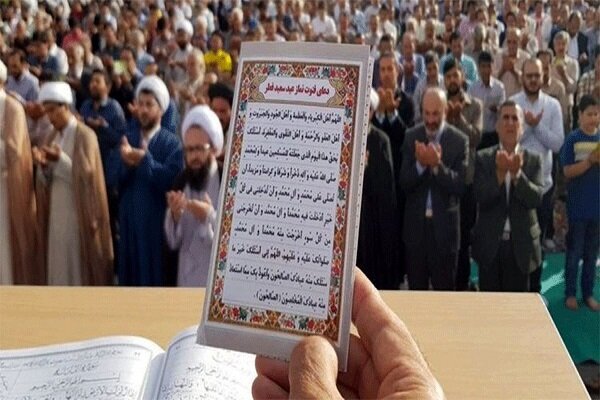 دعای قنوت نماز عید سعید فطر
اَللّهُمَّ اَهْلَ الْكِبْرِياءِ وَالْعَظَمَةِ وَ اَهْلَ الْجُودِ وَالْجَبَرُوتِ وَ
اَهْلَ الْعَفْوِ وَالرَّحْمَةِ وَ اَهْلَ التَّقْوى وَالْمَغْفِرَةِ اَسْئَلُكَ
بِحَقِّ هذَا الْيَومِ الَّذى جَعَلْتَهُ لِلْمُسْلِمينَ عيداً وَلِمُحَمَّدٍ
صَلَّى اللهُ عَلَيْهِ وَ الِهِ ذُخْراً وَ شَرَفاً وَ كَرامَةً وَ مَزيداً اَنْ
تُصَلِّىَ عَلى مُحَمَّدٍ وَ الِ مُحَمَّدٍ وَ اَنْ تُدْخِلَنى فى كُلِّ
خَيْرٍ اَدْخَلْتَ فيهِ مُحَمَّداً وَ الَ مُحَمَّدٍ وَ اَنْ تُخْرِجَنى
مِنْ كُلِّ سُوءٍ اَخْرَجْتَ مِنْهُ مُحَمَّداً وَ الَ مُحَمَّدٍ
صَلَواتُكَ عَلَيْهِ وَ عَلَيْهِمْ اَللّهُمَّ اِنّى اَسْئَلُكَ خَيْرَ ما
سَئَلَكَ مِنْهُ عِبادُكَ الصّالِحُونَ وَاَعُوذُ بِكَ مِمَّا اسْتَعاذَ
مِنْهُ عِبادُكَ الْمُخْلِصُونَ (الصّالِحُونَ).